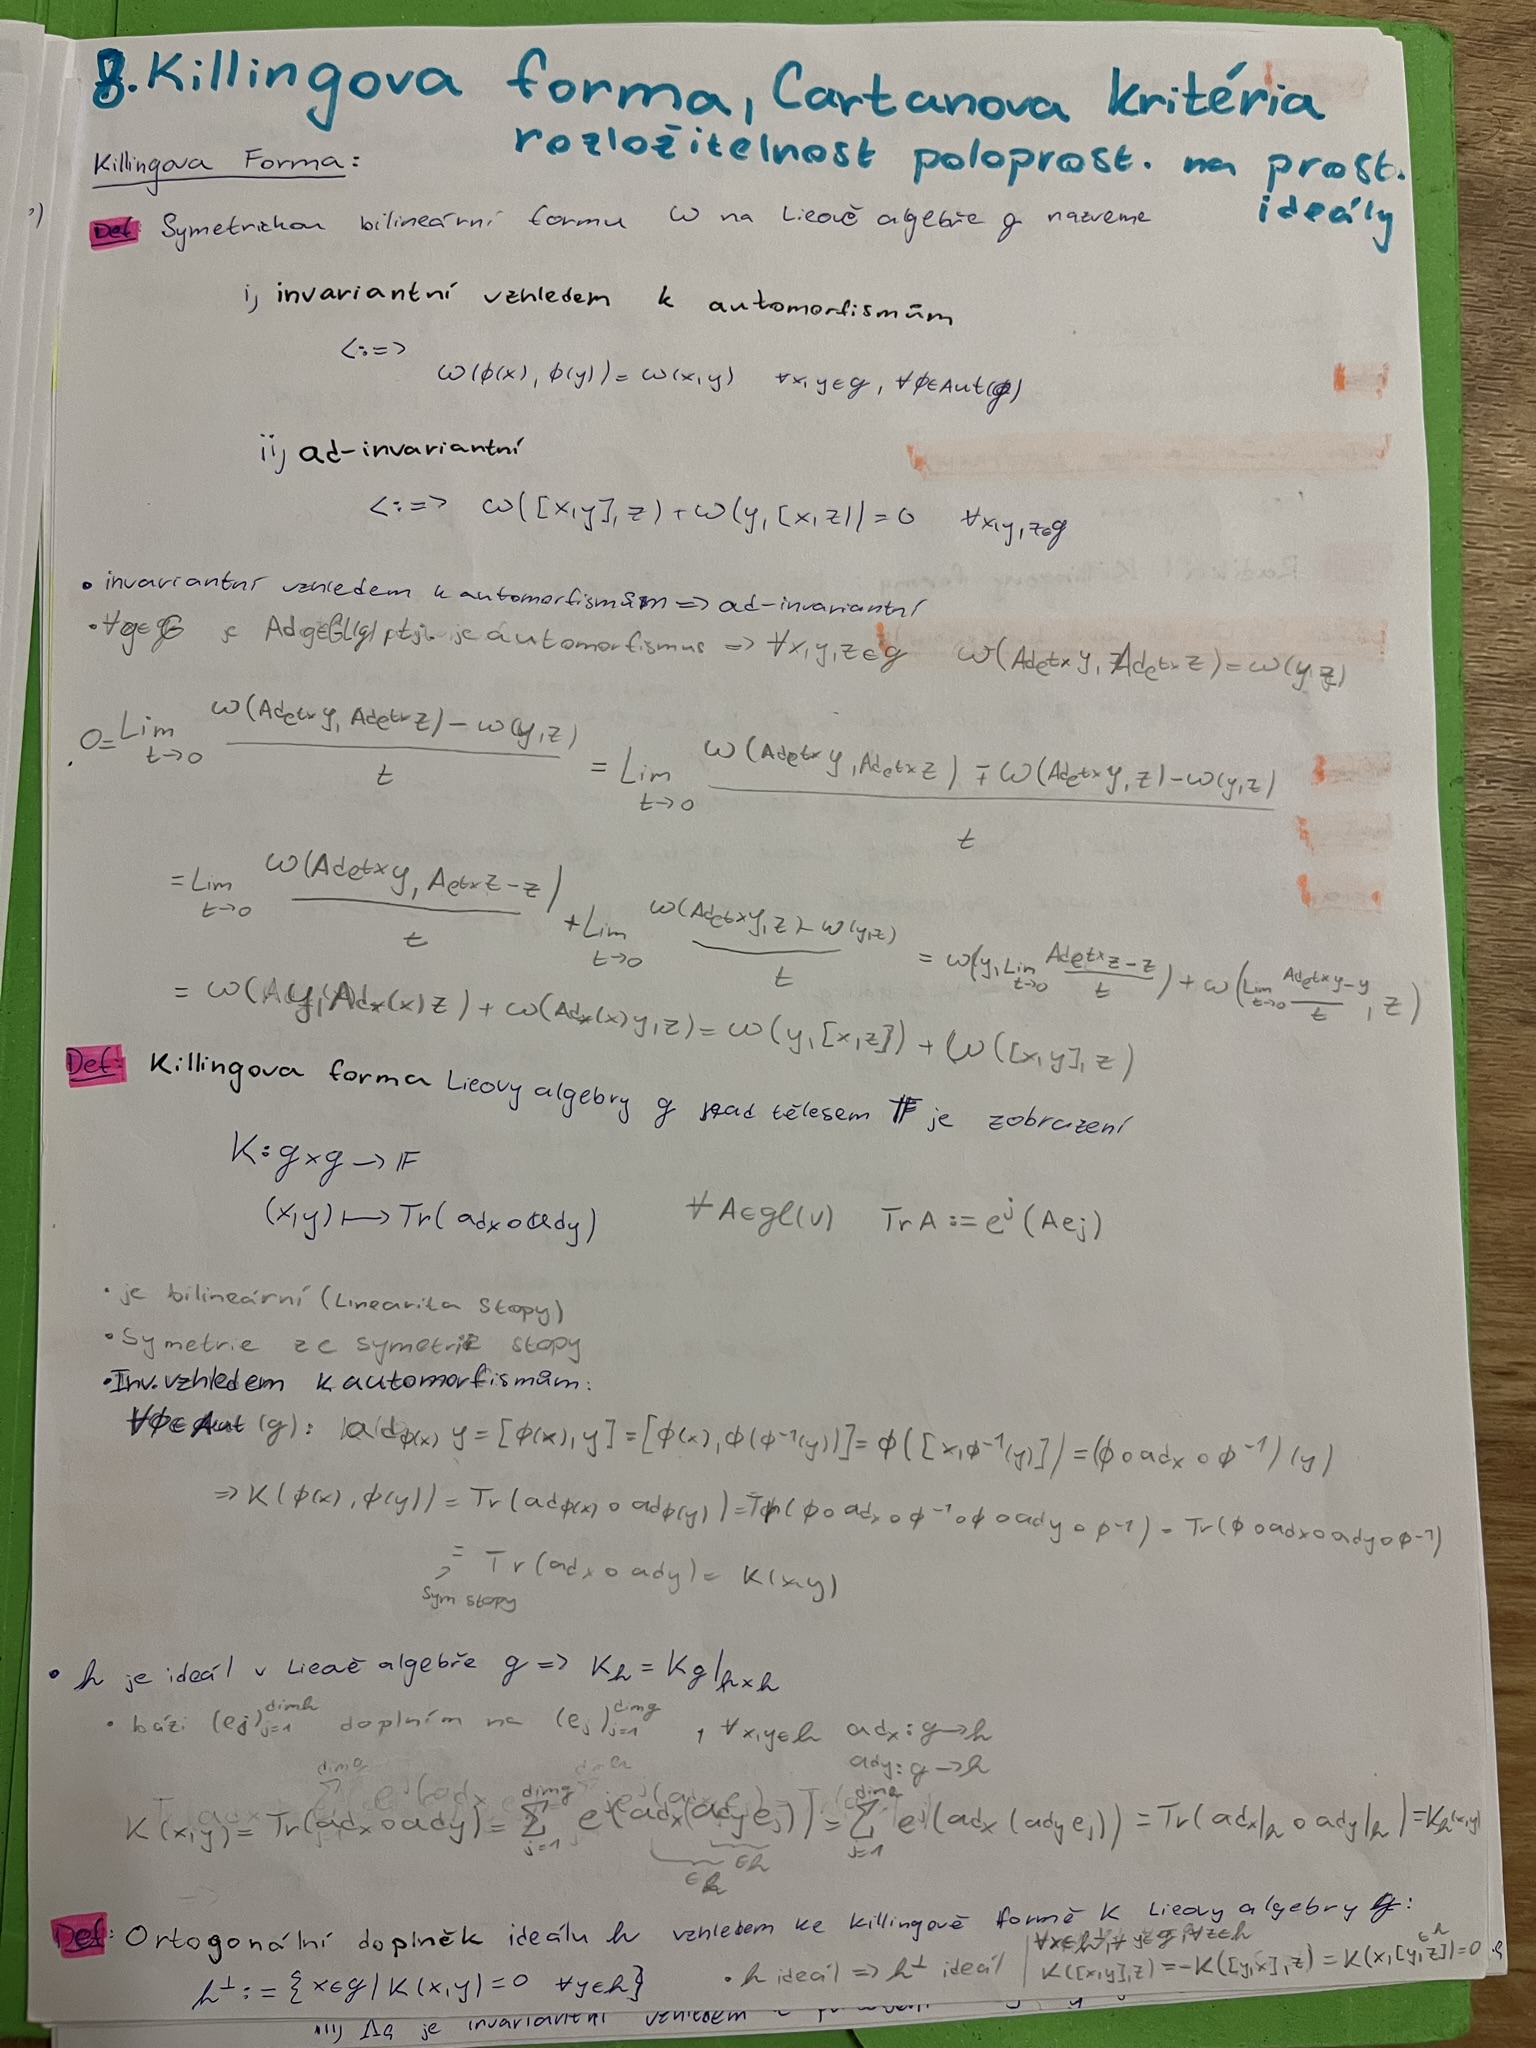 8. Killingova forma, Cartanova kritéria
rozložitelnost poloprost. na prost.
ideály
Killingova Forma:
Def Symetrickou bilineární formu ω na Lieově algebře g nazveme
i) invariantní vzhledem k automorfismům
<:=>
ω(ϕ(x), ϕ(y)) = ω(x,y) ∀x,y∈g, ∀ϕ∈Aut(g)
ii) ad-invariantní
<:=> ω([x,y],z)+ω(y,[x,z])=0 ∀x,y,z∈g
• invariantní vzhledem k automorfismům => ad-invariantní
• ∀g∈G je Adg∈Gl(g) ptj. je automorfismus => ∀x,y,z∈g ω(Ad_{e^{tx}} y, Ad_{e^{tx}} z)=ω(y,z)
0= Lim_{t→0} (ω(Ad_{e^{tx}} y, Ad_{e^{tx}} z) - ω(y,z))/t = Lim_{t→0} (ω(Ad_{e^{tx}} y, Ad_{e^{tx}} z) ∓ ω(Ad_{e^{tx}} y, z) - ω(y,z))/t
= Lim_{t→0} ω(Ad_{e^{tx}} y, A_{e^{tx}} z - z)/t + Lim_{t→0} (ω(Ad_{e^{tx}} y, z) - ω(y,z))/t = ω(y, Lim_{t→0} (Ad_{e^{tx}} z - z)/t) + ω(Lim_{t→0} (Ad_{e^{tx}} y - y)/t, z)
= ω(y, Ad_*(x) z) + ω(Ad_*(x) y, z) = ω(y, [x,z]) + ω([x,y], z)
Def: Killingova forma Lieovy algebry g nad tělesem F je zobrazení
K: g×g → F
(x,y) ↦ Tr(ad_x∘ad_y) ∀A∈gl(V) Tr A := e^j (A e_j)
• je bilineární (Linearita stopy)
• Symetrie ze symetrie stopy
• Inv. vzhledem k automorfismům:
∀ϕ∈Aut(g): ad_{ϕ(x)} y = [ϕ(x), y] = [ϕ(x), ϕ(ϕ^{-1}(y))] = ϕ([x, ϕ^{-1}(y)]) = (ϕ∘ad_x∘ϕ^{-1})(y)
=> K(ϕ(x), ϕ(y)) = Tr(ad_{ϕ(x)}∘ad_{ϕ(y)}) = Tr(ϕ∘ad_x∘ϕ^{-1}∘ϕ∘ad_y∘ϕ^{-1}) = Tr(ϕ∘ad_x∘ad_y∘ϕ^{-1})
= Tr(ad_x∘ad_y) = K(x,y)
sym stopy
• h je ideál v Lieově algebře g => K_h = K_g|_{h×h}
• bázi (e_j)_{j=1}^{dim h} doplním na (e_j)_{j=1}^{dim g}, ∀x,y∈h ad_x: g→h
ad_y: g→h
K(x,y) = Tr(ad_x∘ad_y) = Σ_{j=1}^{dim g} e^j(ad_x(ad_y e_j)) = Σ_{j=1}^{dim h} e^j(ad_x(ad_y e_j)) = Tr(ad_x|_h∘ad_y|_h) = K_h(x,y)
∈h
∈h
Def: Ortogonální doplněk ideálu h vzhledem ke Killingově formě K Lieovy algebry g:
h^⊥ := {x∈g | K(x,y)=0 ∀y∈h} • h ideál => h^⊥ ideál
∀x∈h^⊥, ∀y∈g, ∀z∈h
K([x,y],z) = -K([y,x],z) = K(x,[y,z])=0
∈h
iii) Δg je invariantní vzhledem